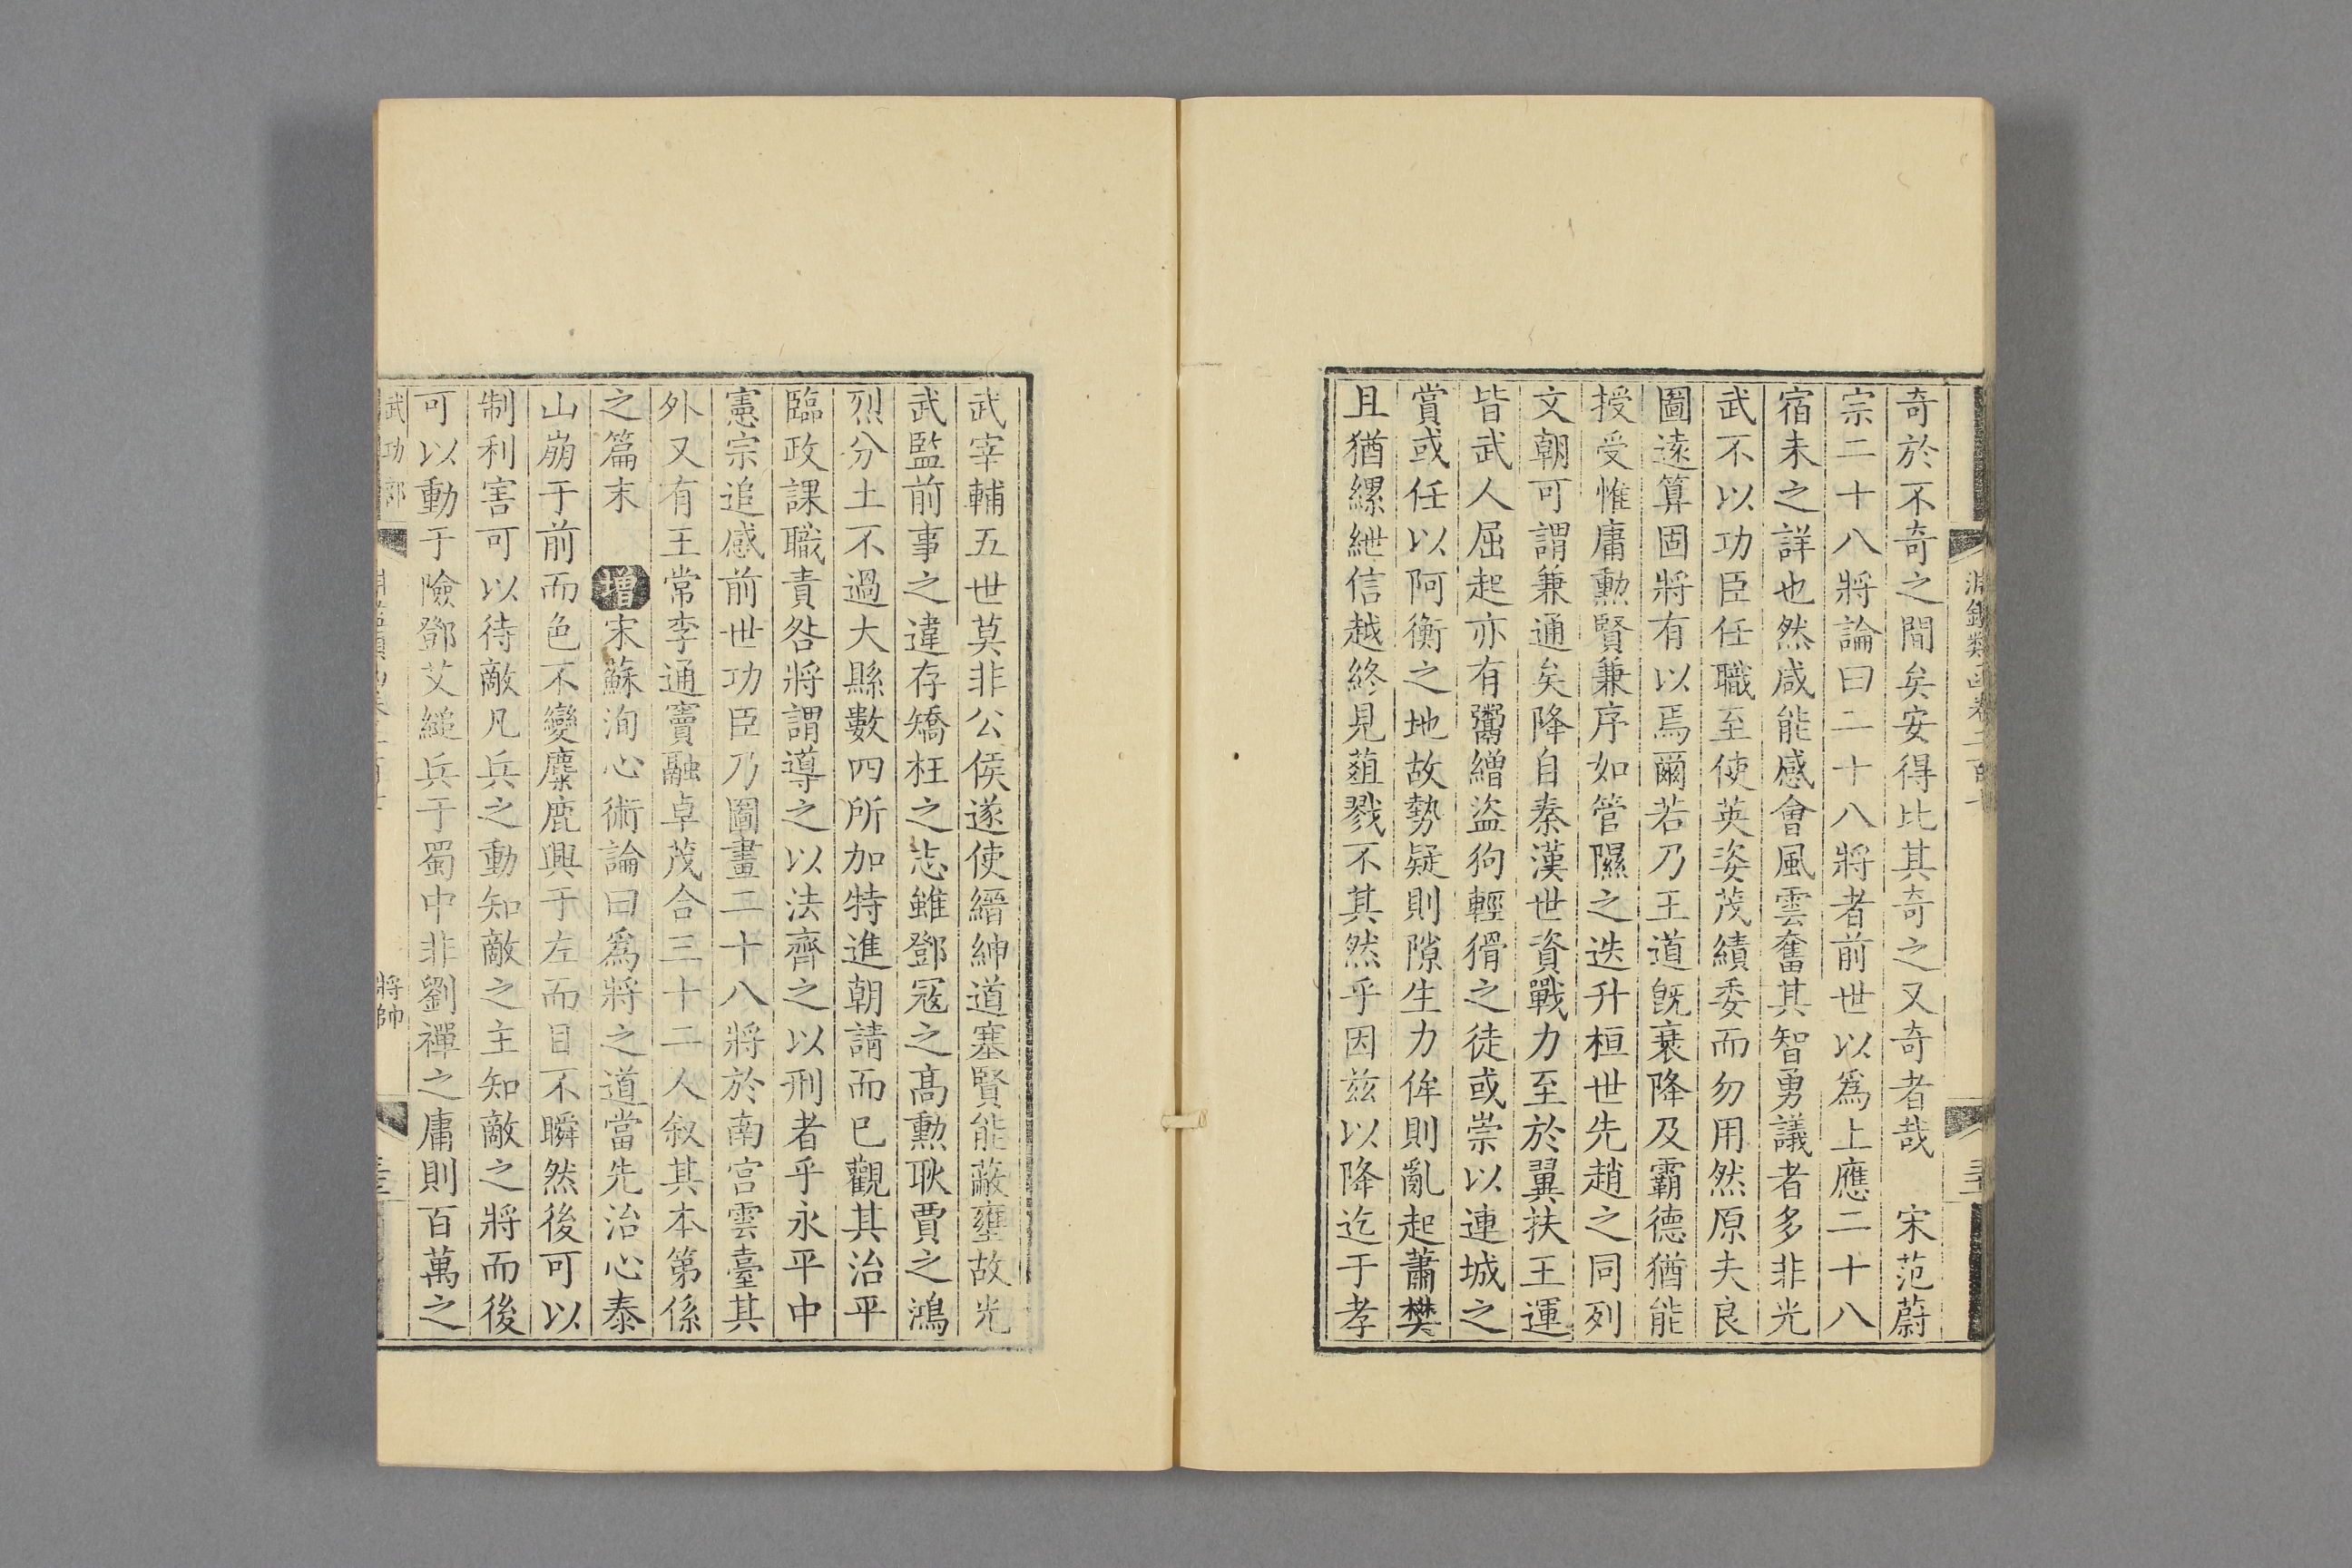 奇於不奇之間矣安得比其奇之又奇者哉　宋范蔚
宗二十八將論曰二十八將者前世以爲上應二十八
宿未之詳也然咸能感會風雲奮其智勇議者多非光
武不以功臣任職至使英姿茂績委而勿用然原夫良
圖遠算固將有以焉爾若乃王道旣衰降及霸德猶能
授受惟庸勳賢兼序如管隰之迭升桓世先趙之同列
文朝可謂兼通矣降自秦漢世資戰力至於翼扶王運
皆武人屈起亦有鬻繒盜狗輕猾之徒或崇以連城之
賞或任以阿衡之地故勢疑則隙生力侔則亂起蕭樊
且猶縲紲信越終見葅戮不其然乎因兹以降迄于孝
武宰輔五世莫非公侯遂使縉紳道塞賢能蔽壅故光
武監前事之違存矯枉之志雖鄧寇之高勳耿賈之鴻
烈分土不過大縣數四所加特進朝請而已觀其治平
臨政課職責咎將謂導之以法齊之以刑者乎永平中
憲宗追感前世功臣乃圖畫二十八將於南宮雲臺其
外又有王常李通竇融卓茂合三十二人叙其本第係
之篇末　增宋蘇洵心術論曰爲將之道當先治心泰
山崩于前而色不變麋鹿興于左而目不瞬然後可以
制利害可以待敵凡兵之動知敵之主知敵之將而後
可以動于險鄧艾縋兵于蜀中非劉禪之庸則百萬之
武功部　將帥